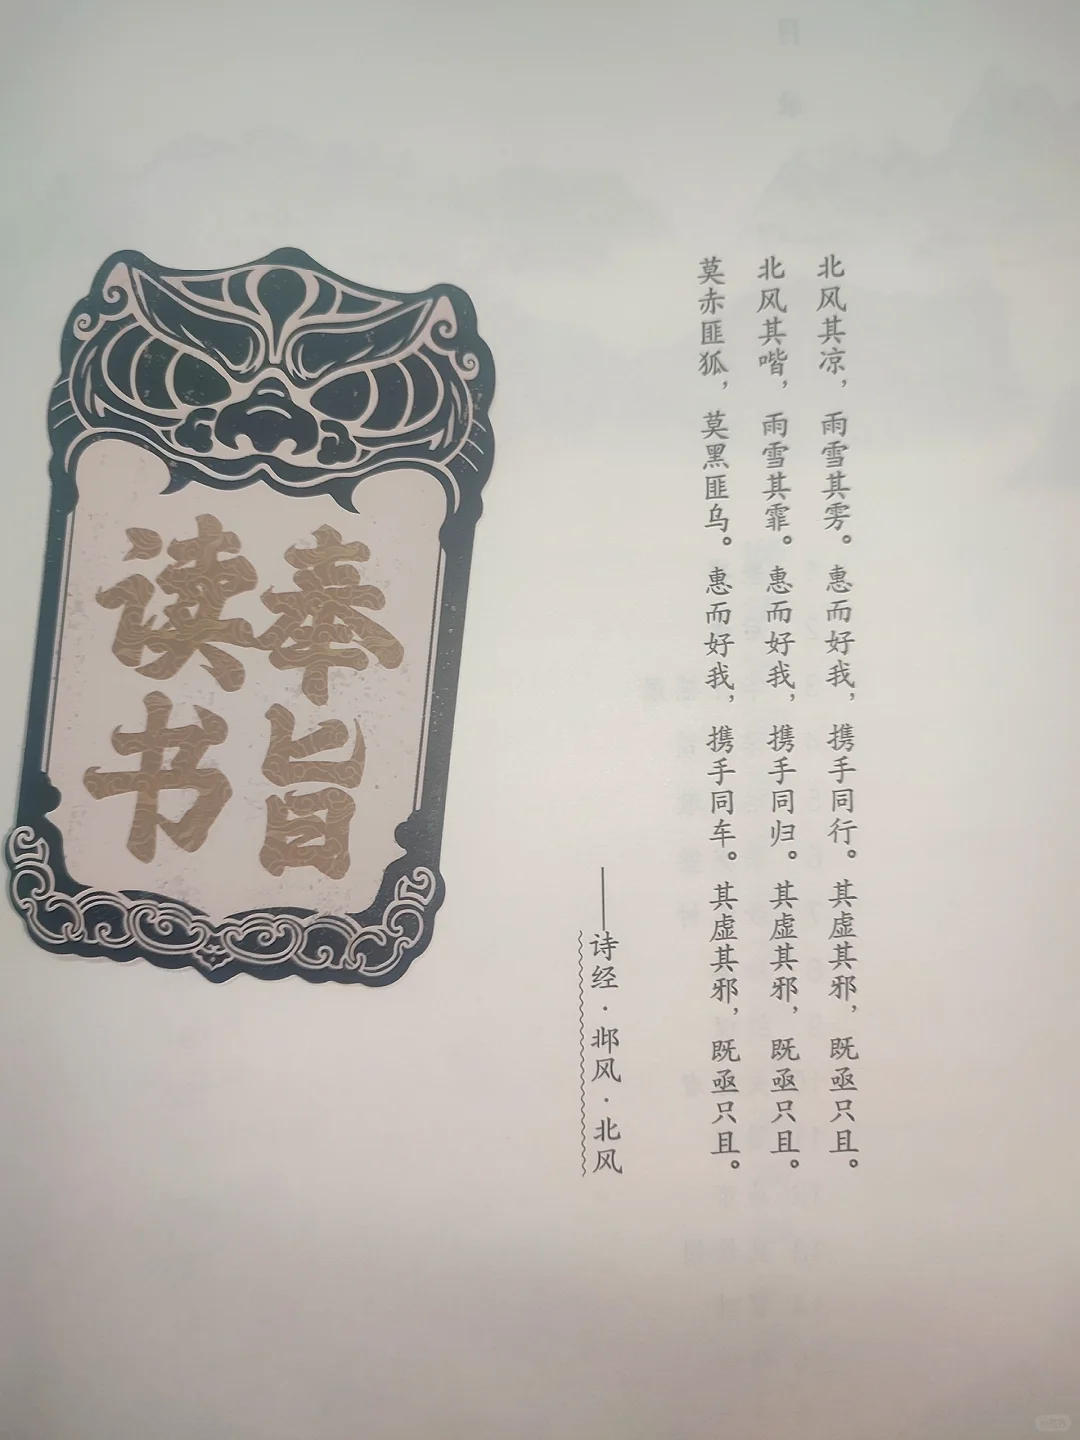 北风其凉，雨雪其雱。惠而好我，携手同行。其虚其邪，既亟只且。
北风其喈，雨雪其霏。惠而好我，携手同归。其虚其邪，既亟只且。
莫赤匪狐，莫黑匪乌。惠而好我，携手同车。其虚其邪，既亟只且。
——诗经·邶风·北风
奉旨
读书